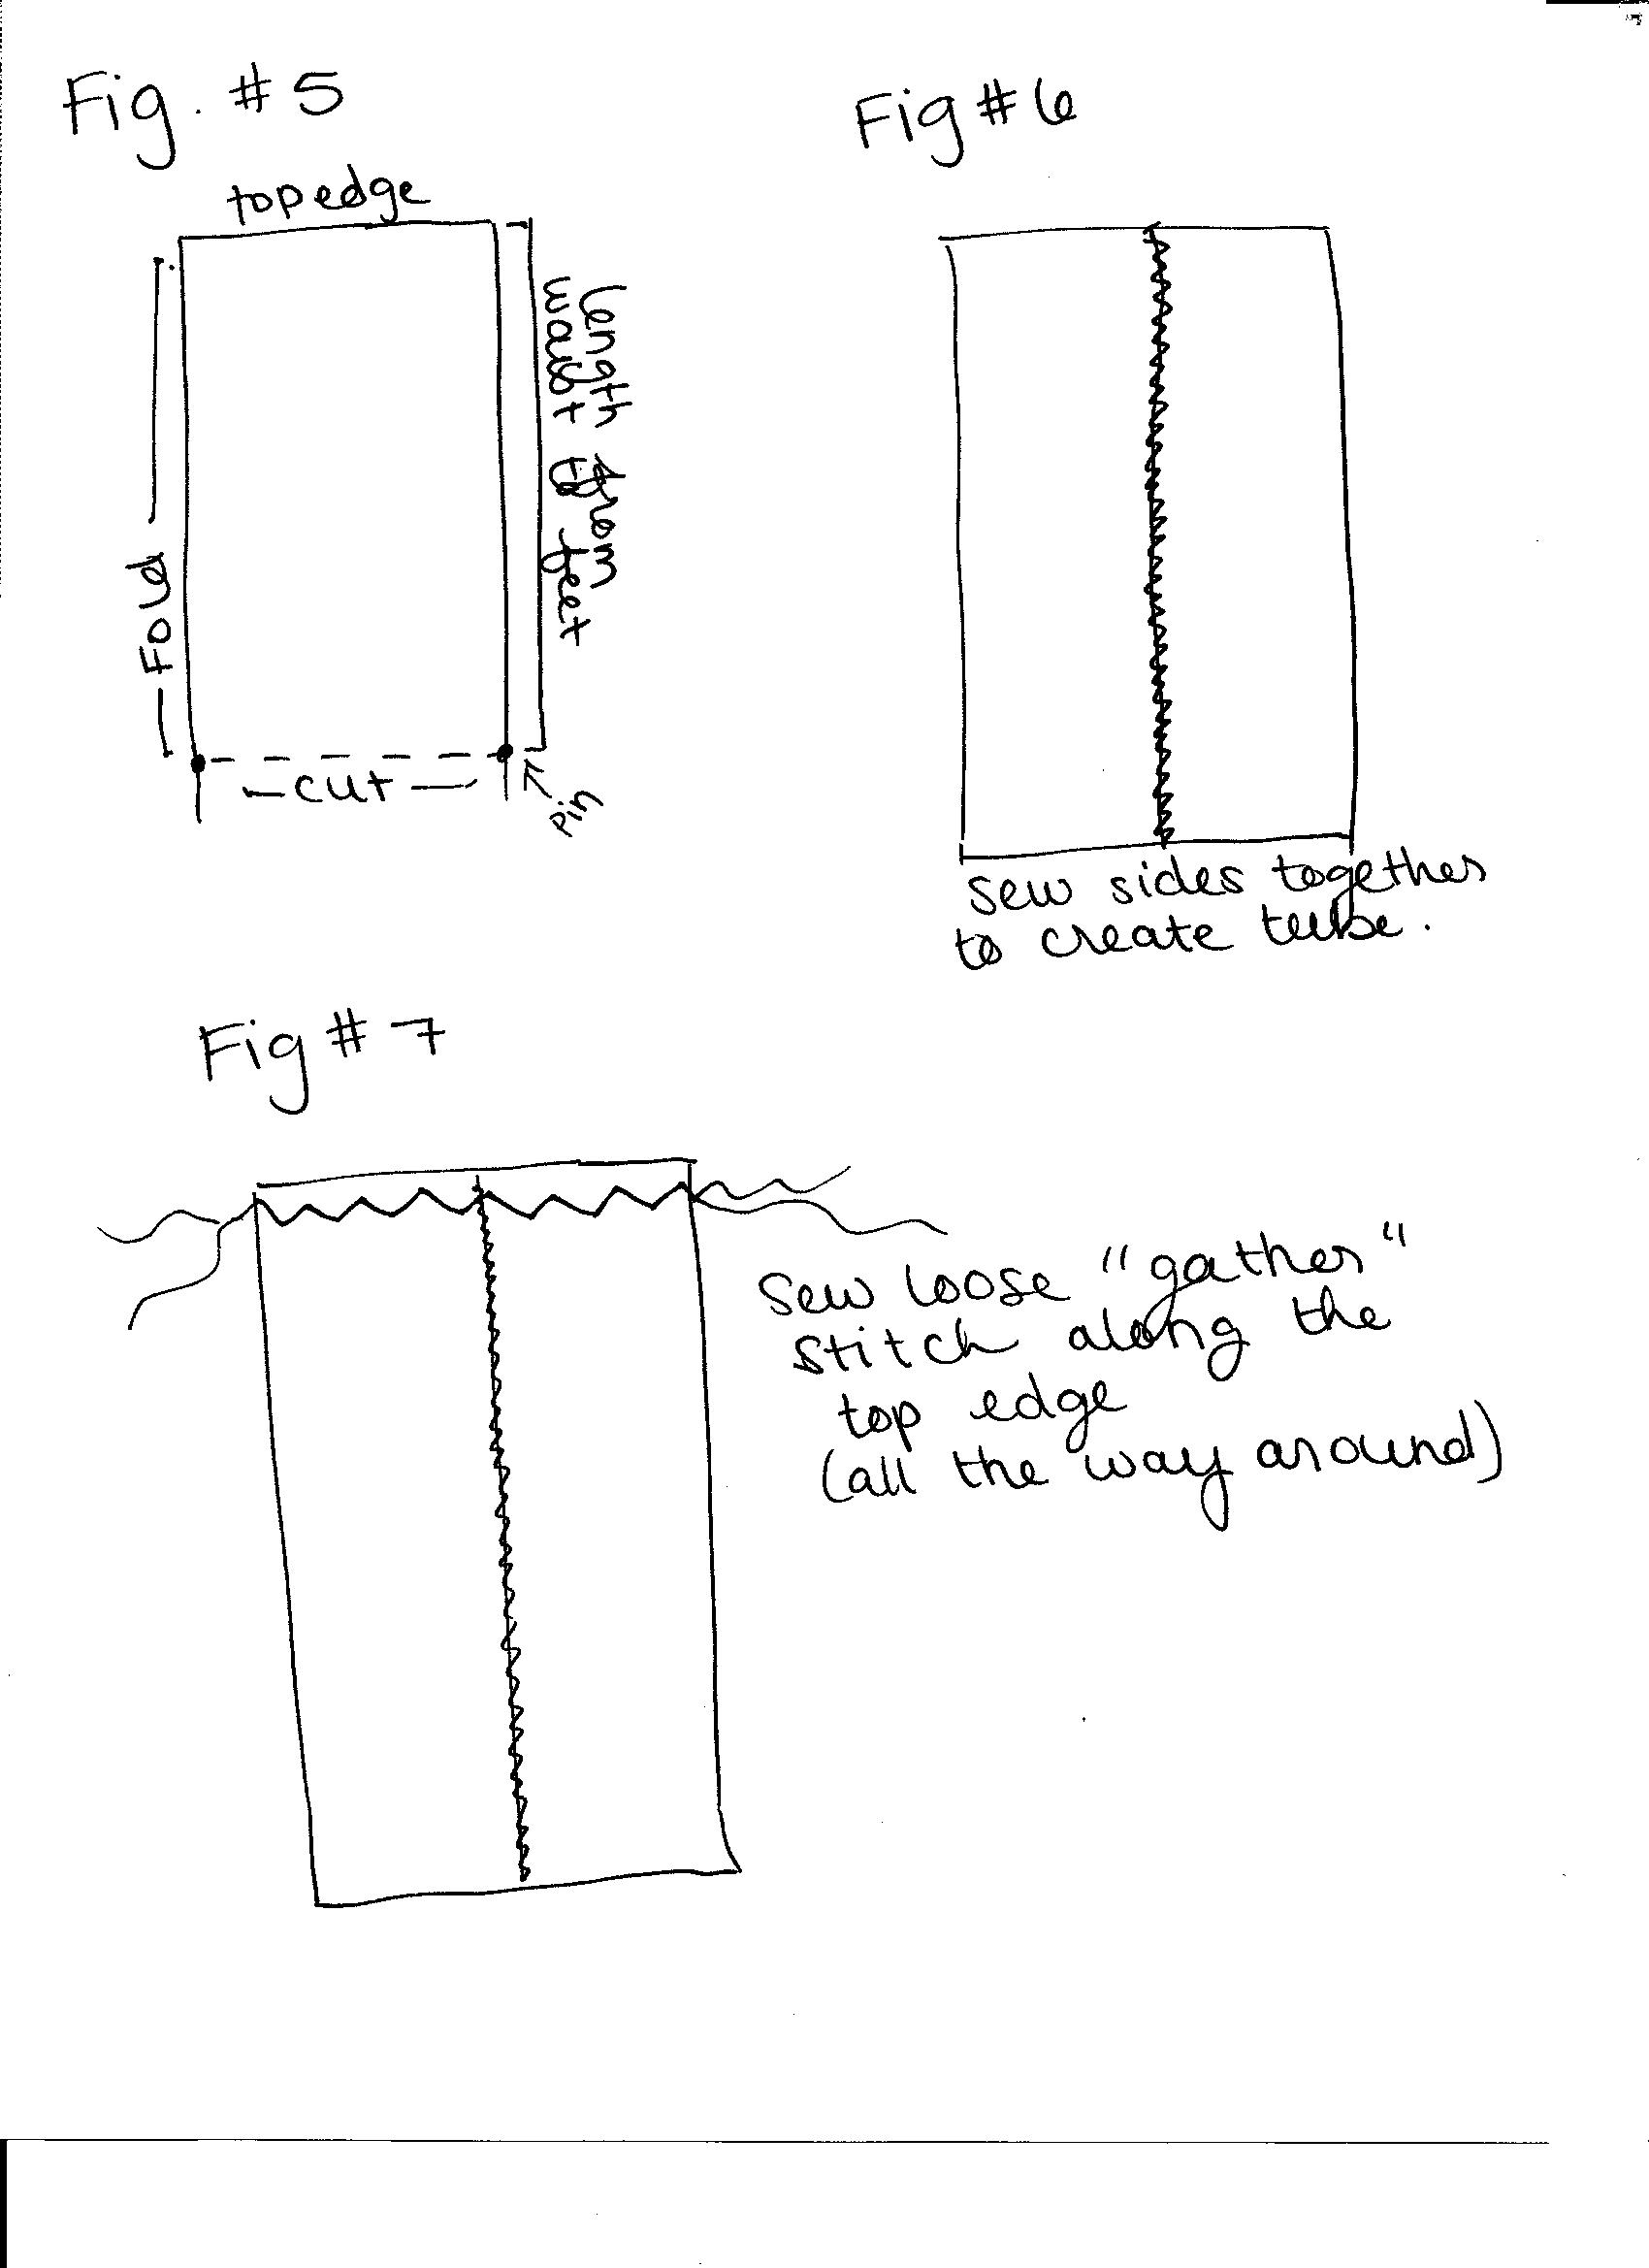 Fig. #5
top edge
length from
waist to feet
— Fold —
— cut —
Pin
Fig #6
Sew sides together
to create tube.
Fig #7
Sew loose "gather"
stitch along the
top edge
(all the way around)